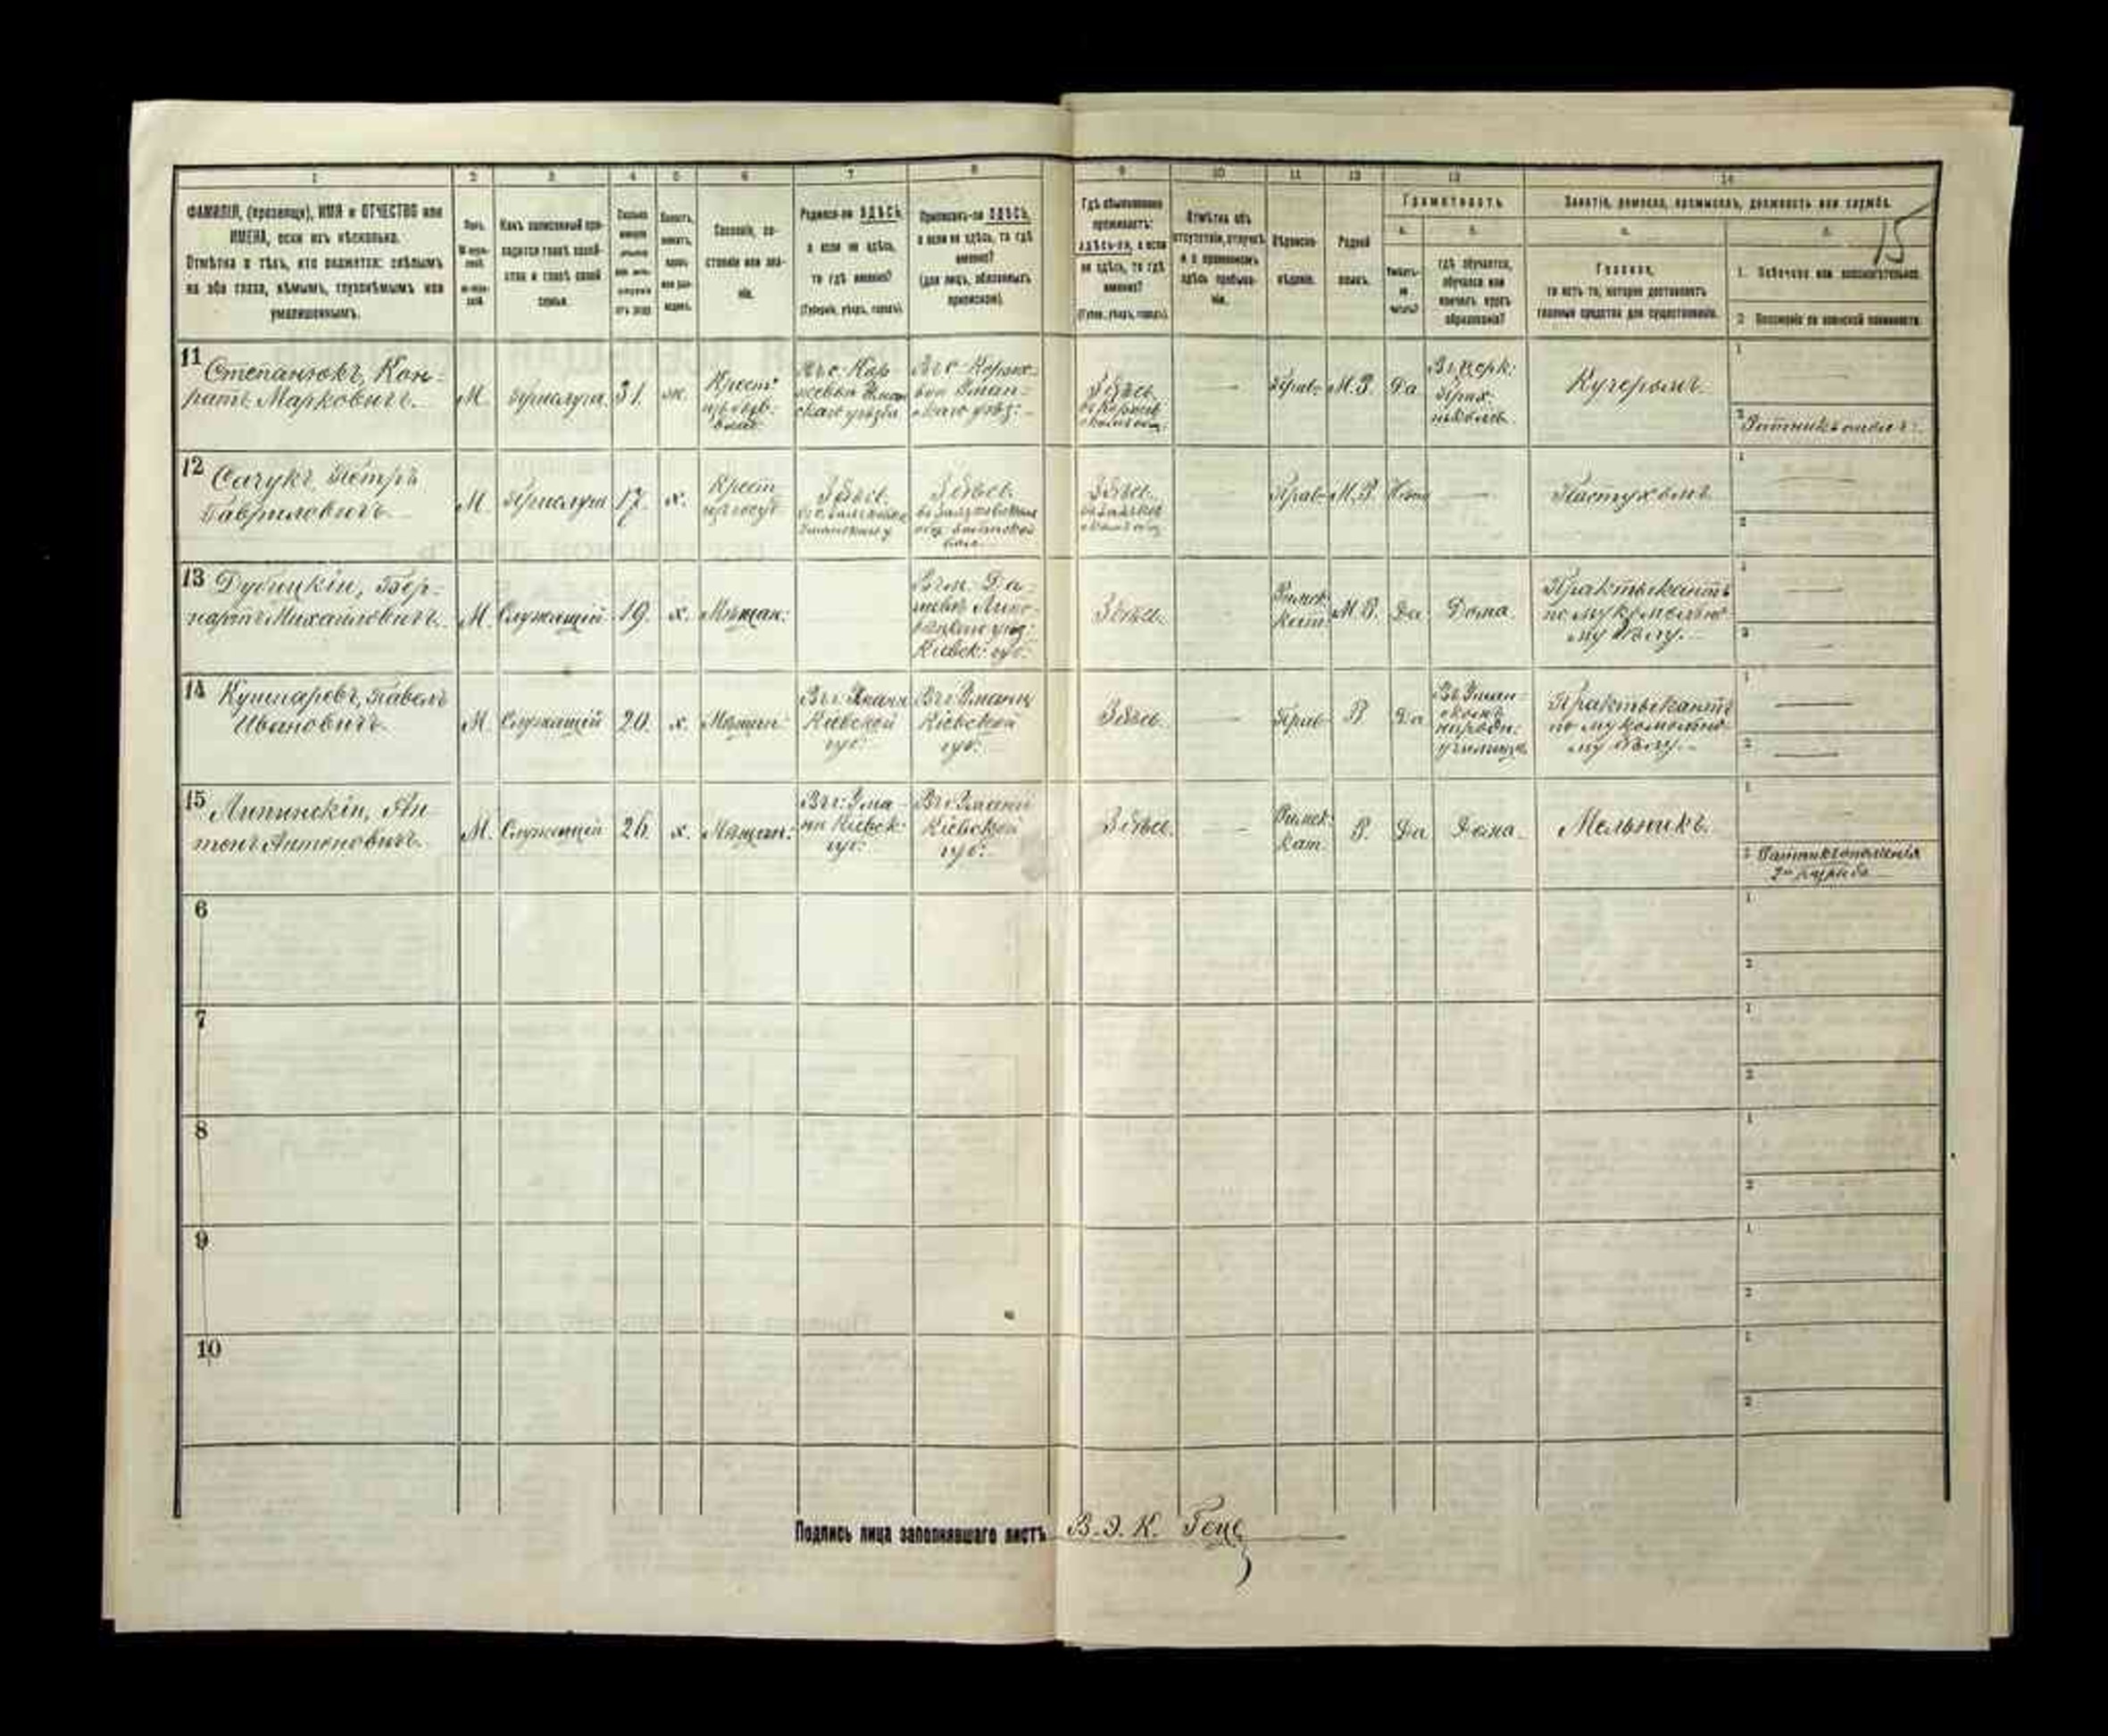 1 2 3 4 5 6 7 8 9 10 11 12 13 14
15
ФАМИЛІЯ, (прозвище), ИМЯ и ОТЧЕСТВО или
ИМЕНА, если ихъ нѣсколько.
Отмѣтка о тѣхъ, кто окажется: слѣпымъ
на оба глаза, нѣмымъ, глухонѣмымъ или
умалишеннымъ.
Полъ.
Какъ записанный при-
ходится главѣ хозяй-
ства и главѣ своей
семьи.
Сословіе, со-
стояніе или зва-
ніе.
Родился-ли ЗДѢСЬ,
а если не здѣсь,
то гдѣ именно?
(Губернія, уѣздъ, городъ).
Приписанъ-ли ЗДѢСЬ,
а если не здѣсь, то гдѣ
именно?
(для лицъ, обязанныхъ
припискою).
Гдѣ обыкновенно
проживаетъ:
здѣсь-ли, а если
не здѣсь, то гдѣ
именно?
(Губерн., уѣздъ, городъ).
Отмѣтка объ
отсутствіи, отлучкѣ
и о временномъ
здѣсь пребыва-
ніи.
Вѣроиспо-
вѣданіе.
Родной
языкъ.
Грамотность.
а.
Умѣетъ-
ли
читать?
б.
гдѣ обучается,
обучался или
кончилъ курсъ
образованія?
Занятіе, ремесло, промыселъ, должность или служба.
а.
Главное,
то есть то, которое доставляетъ
главныя средства для существованія.
б.
1. Побочное или вспомогательное.
2. Положеніе по воинской повинности.
11 Степанюкъ, Кон-
ратъ Марковичъ.
М.
прислуга
31.
ж.
Крест:
Въ с. Кор
жевой Уман
скаго уѣзда
Въ с. Коржо-
вой Уман-
скаго уѣз:
Здѣсь
Прав:
М.Р.
Да
Въ церк:
прих.
школѣ.
Кучеромъ.
1
2 Ратникъ
12 Сачукъ, Петръ
Гавриловичъ.
М
прислуга
17.
х.
Крест
Здѣсь.
Здѣсь.
Здѣсь.
Прав
М.Р
Пастухомъ
1
2
13 Дубицкій, Бер-
нартъ Михаиловичъ.
М.
Служащій
19.
х.
Мѣщан:
Въ м. Да-
шевъ Липо-
вецкаго уѣз:
Кіевск: губ:
Здѣсь.
Римск
кат:
М.Р.
Да
Дома
Практыкантъ
по мукомольно-
му дѣлу.
1
2
14 Кушнаревъ, Павелъ
Ивановичъ.
М.
Служащій
20.
х.
Мѣщан:
Въ г. Умани
Кіевской
губ:
Въ г. Умани
Кіевской
губ:
Здѣсь
Прав
Р.
Да
Въ Уман-
скомъ
народн:
училищѣ
Практыкантъ
по мукомольно-
му дѣлу.
1
2
15 Липинскій, Ан-
тонъ Антоновичъ.
М.
Служащій
26.
х.
Мѣщан:
Въ г. Ума-
ни Кіевск:
губ:
Въ г. Умани
Кіевской
губ:
Здѣсь.
Римск:
кат.
Р.
Да
Дома
Мельникъ.
1
2 Ратникъ ополченія
2го разряда
6
1
2
7
1
2
8
1
2
9
1
2
10
1
2
Подпись лица заполнявшаго листъ В.Э.К. Гецъ